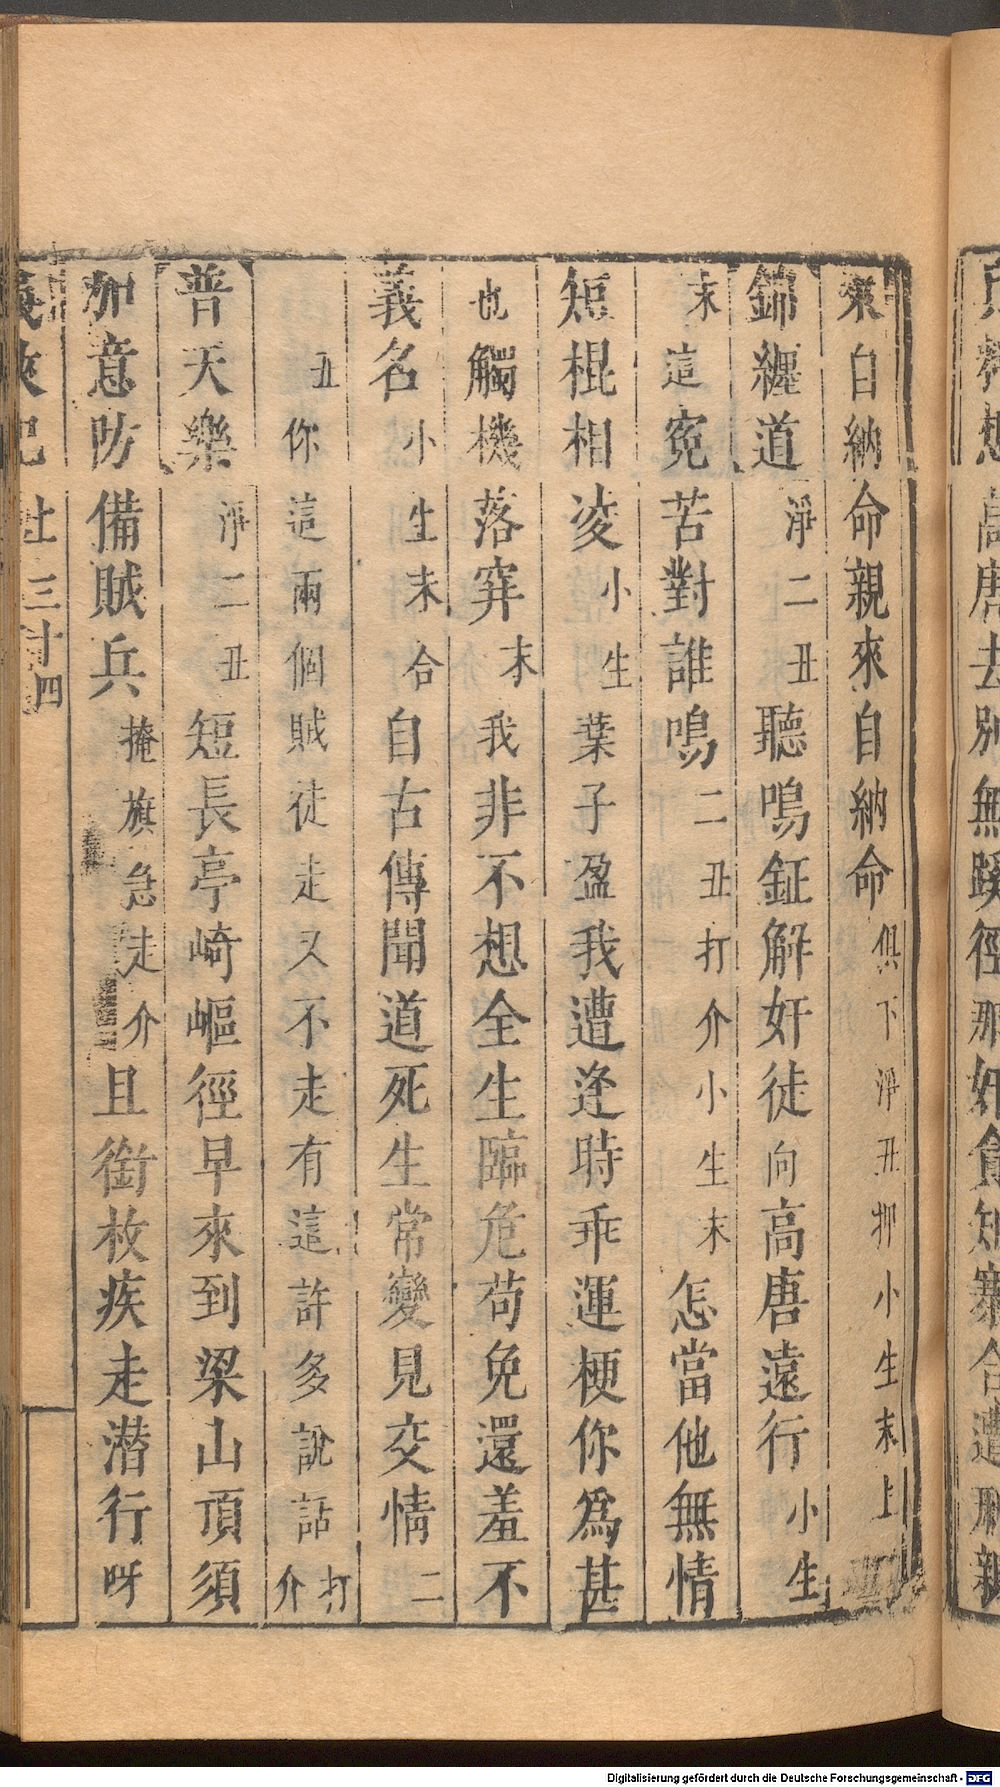 來自納命親來自納命俱下淨丑押小生末上
錦纏道淨二丑聽鳴鉦解奸徒向高唐遠行小生
末這寃苦對誰鳴二丑打介小生末怎當他無情
短棍相凌小生葉子盈我遭逢時乖運梗你爲甚
也觸機落穽末我非不想全生臨危苟免還羞不
義名小生末合自古傳聞道死生常變見交情二
丑你這兩個賊徒走又不走有這許多說話打介
普天樂淨二丑短長亭崎嶇徑早來到梁山頂須
加意防備賊兵掩旗急走介且銜枚疾走潜行呀
義俠記 卄三十四
高唐去別無蹊徑那奸貪知寨合遭刑親
Digitalisierung gefördert durch die Deutsche Forschungsgemeinschaft - DFG